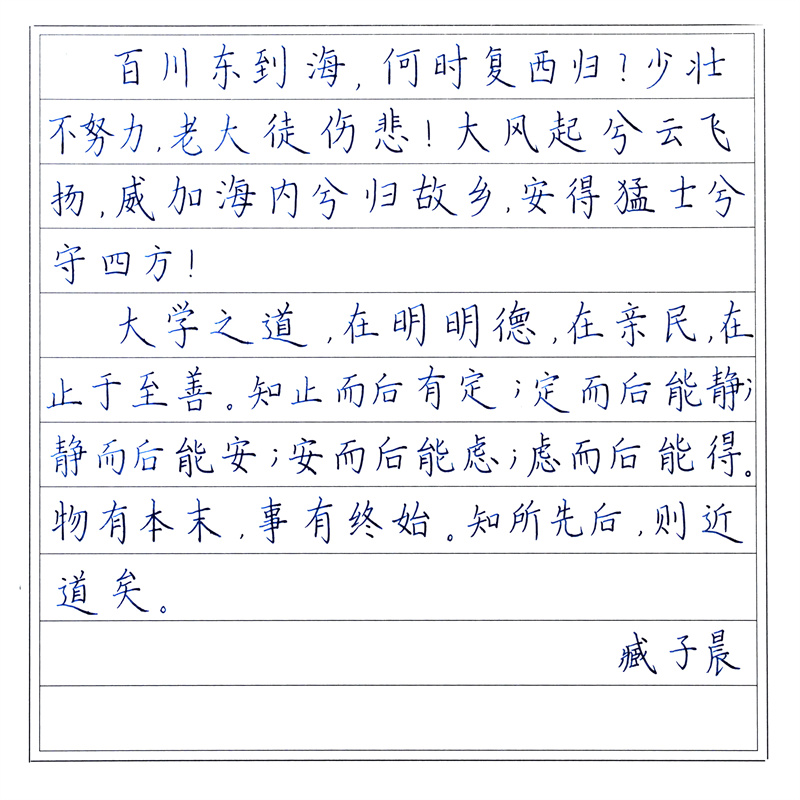 百川东到海,何时复西归?少壮
不努力,老大徒伤悲!大风起兮云飞
扬,威加海内兮归故乡,安得猛士兮
守四方!
大学之道,在明明德,在亲民,在
止于至善。知止而后有定;定而后能静;
静而后能安;安而后能虑;虑而后能得。
物有本末,事有终始。知所先后,则近
道矣。
臧子晨